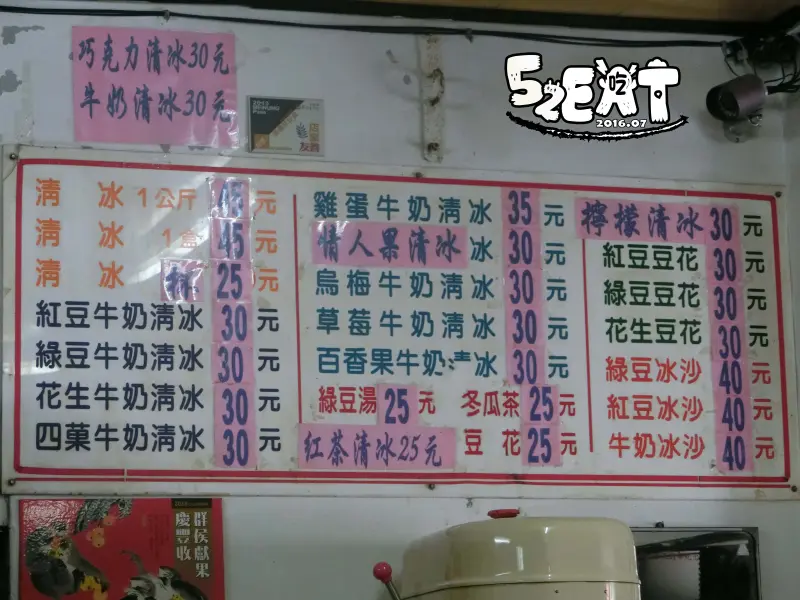 巧克力清冰30元
牛奶清冰30元
52EAT
吃
2016.07
清 冰 1公斤 45元
清 冰 1盒 45元
清 冰 杯 25元
紅豆牛奶清冰 30元
綠豆牛奶清冰 30元
花生牛奶清冰 30元
四菓牛奶清冰 30元
雞蛋牛奶清冰 35元
情人果清冰 冰 30元
烏梅牛奶清冰 30元
草莓牛奶清冰 30元
百香果牛奶清冰 30元
綠豆湯 25元 冬瓜茶 25元
紅茶清冰25元 豆 花 25元
檸檬清冰 30元
紅豆豆花 30元
綠豆豆花 30元
花生豆花 30元
綠豆冰沙 40元
紅豆冰沙 40元
牛奶冰沙 40元
群侯獻果
慶豐收